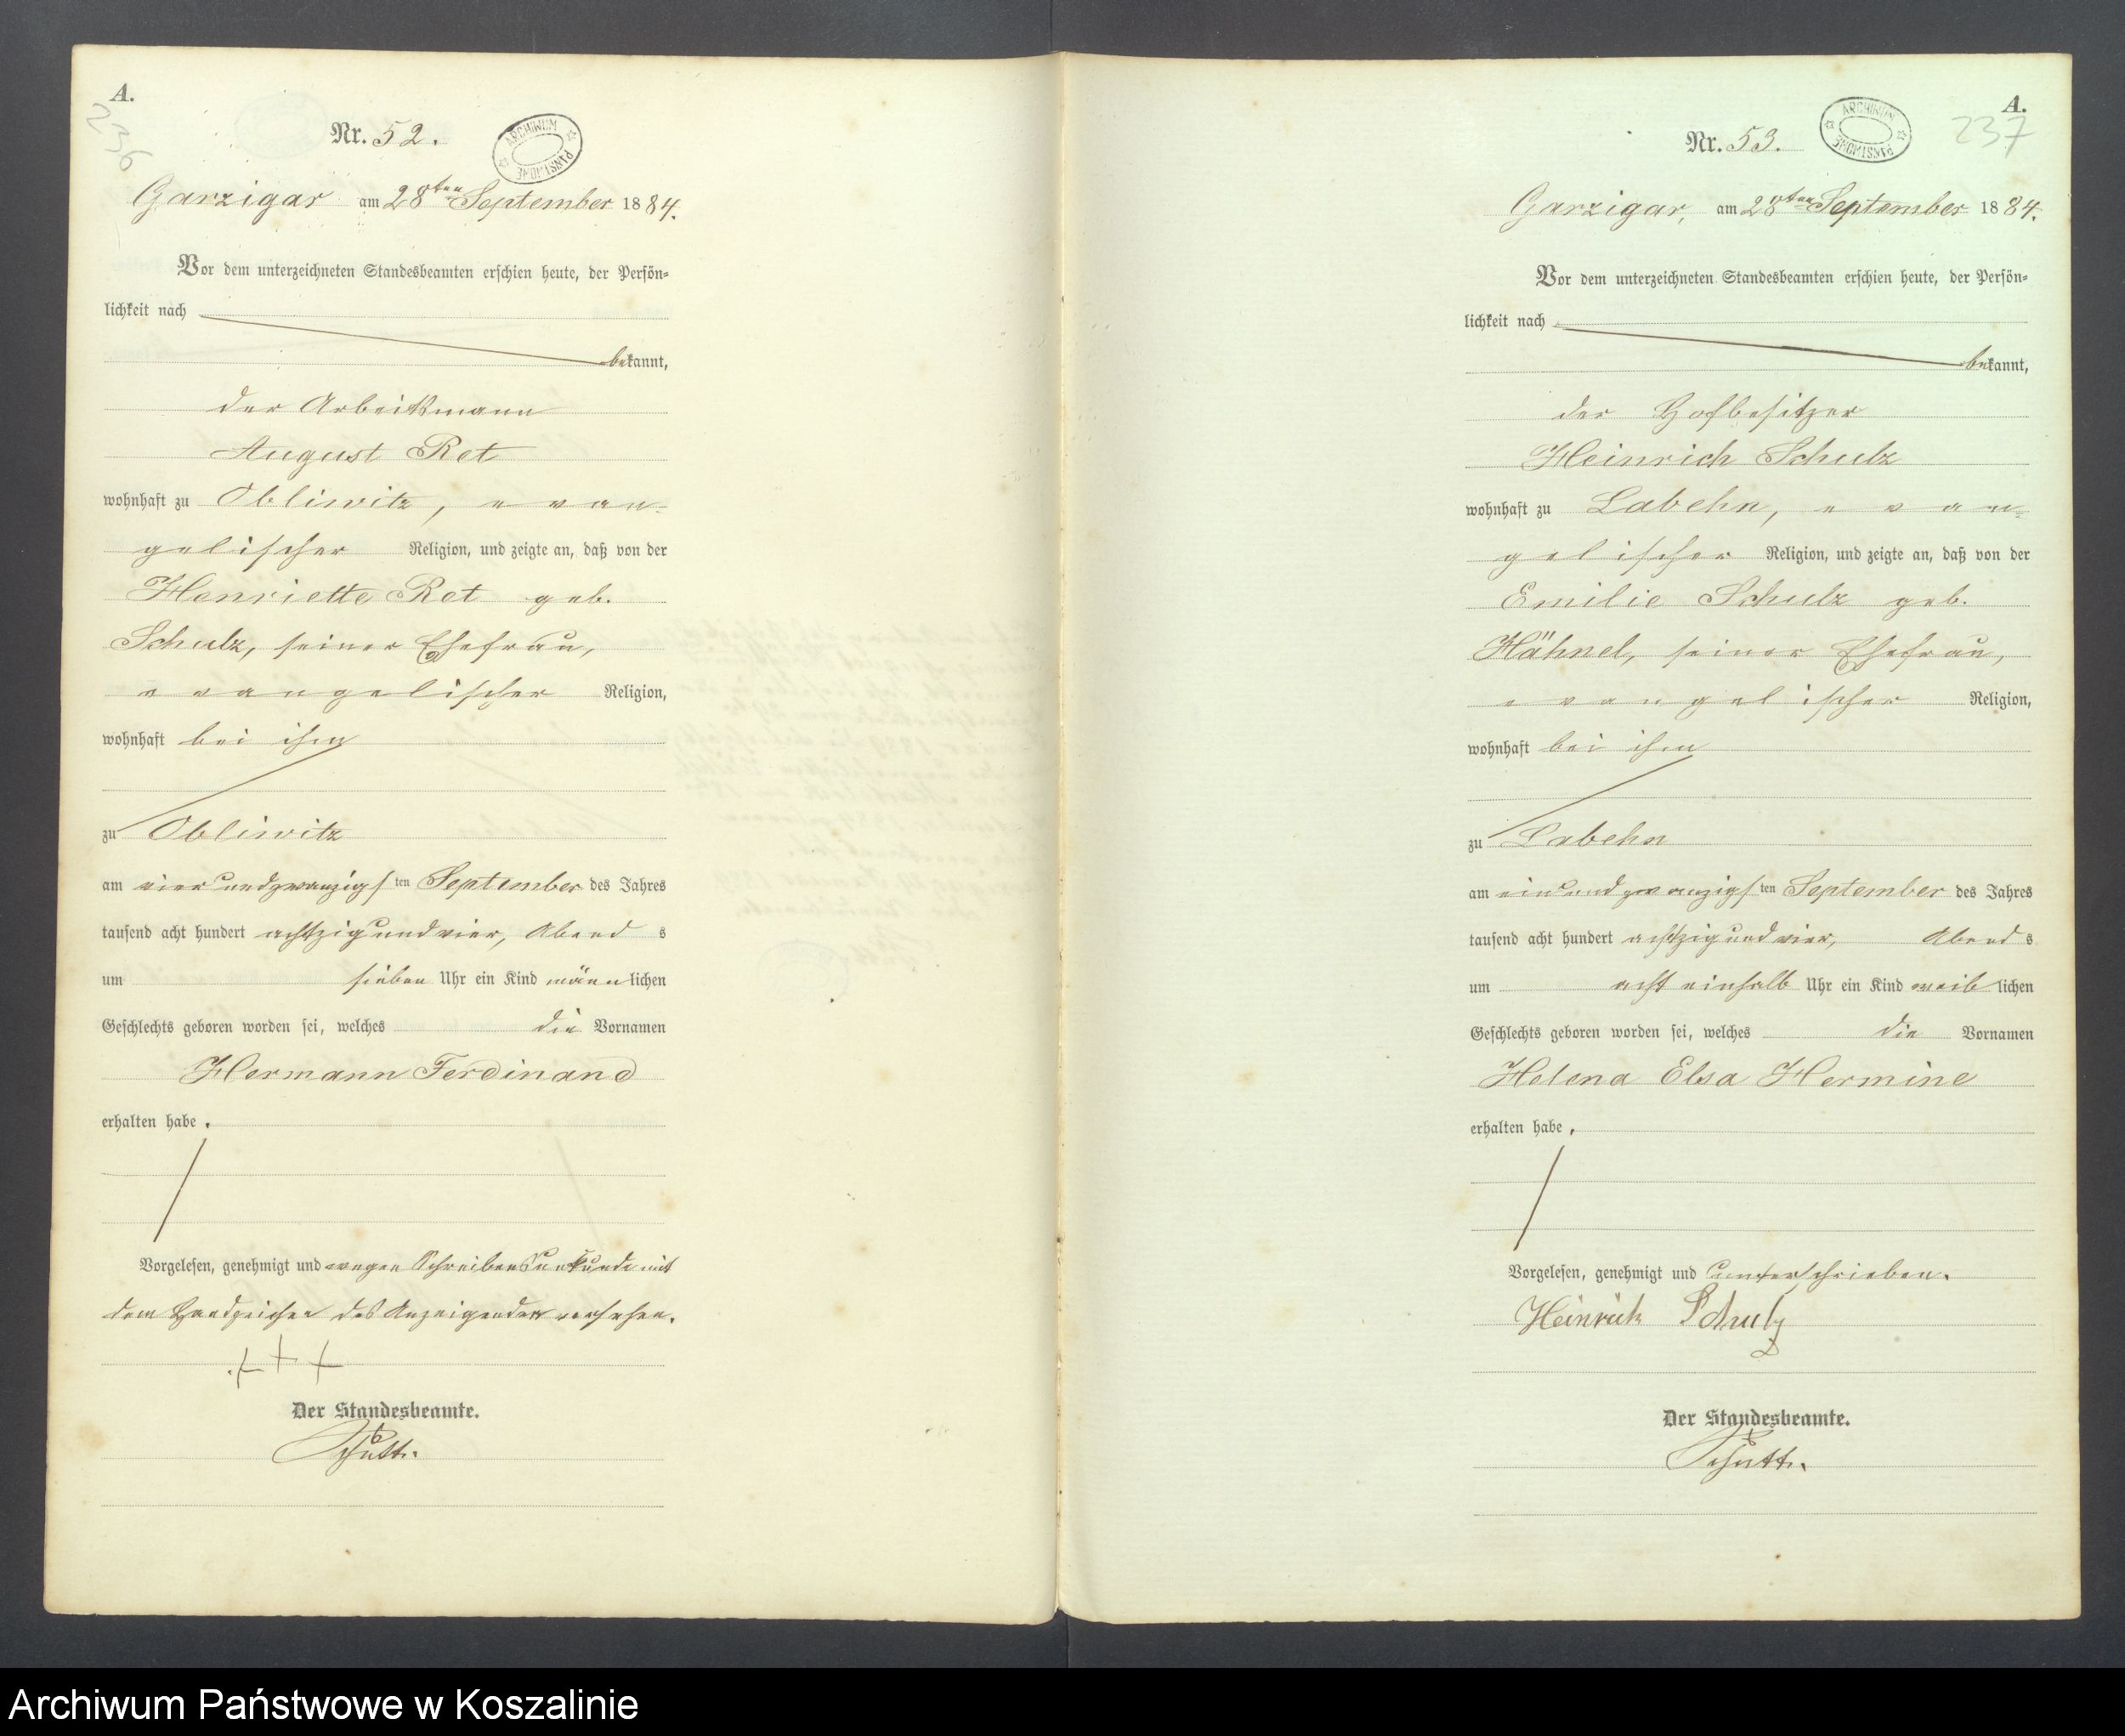 A.
236
Nr. 52.
ARCHIWUM PAŃSTWOWE
Garzigar am 28ten September 1884.
Vor dem unterzeichneten Standesbeamten erschien heute, der Persön=
lichkeit nach
bekannt,
der Arbeitsmann
August Ret
wohnhaft zu Obliwitz, evan-
gelischer Religion, und zeigte an, daß von der
Henriette Ret geb.
Schulz, seiner Ehefrau,
evangelischer Religion,
wohnhaft bei ihm
zu Obliwitz
am vierundzwanzigsten September des Jahres
tausend acht hundert achtzig und vier, Abends
um sieben Uhr ein Kind männlichen
Geschlechts geboren worden sei, welches die Vornamen
Hermann Ferdinand
erhalten habe.
Vorgelesen, genehmigt und wegen Schreibensunkunde mit
dem Handzeichen des Anzeigenden versehen.
+ + +
Der Standesbeamte.
A.
237
Nr. 53.
ARCHIWUM PAŃSTWOWE
Garzigar, am 28ten September 1884.
Vor dem unterzeichneten Standesbeamten erschien heute, der Persön=
lichkeit nach
bekannt,
der Hofbesitzer
Heinrich Schulz
wohnhaft zu Labehn, evan=
gelischer Religion, und zeigte an, daß von der
Emilie Schulz geb.
Hähnel, seiner Ehefrau,
evangelischer Religion,
wohnhaft bei ihm
zu Labehn
am einundzwanzigsten September des Jahres
tausend acht hundert achtzig und vier, Abends
um acht einhalb Uhr ein Kind weiblichen
Geschlechts geboren worden sei, welches die Vornamen
Helena Elsa Hermine
erhalten habe.
Vorgelesen, genehmigt und unterschrieben.
Heinrich Schulz
Der Standesbeamte.
Archiwum Państwowe w Koszalinie